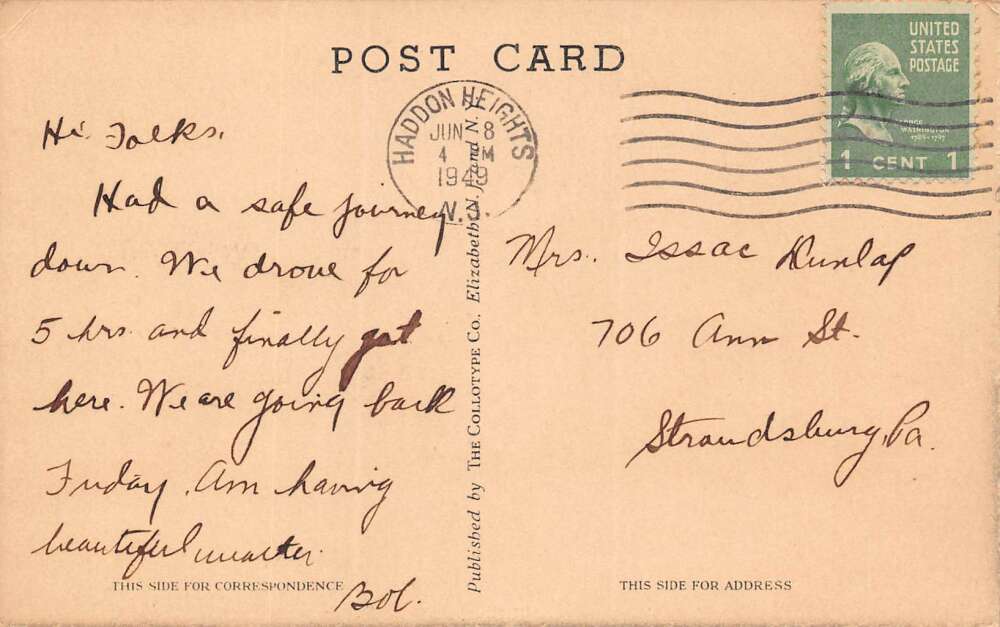 POST CARD
UNITED
STATES
POSTAGE
GEORGE
WASHINGTON
1789-1797
1 CENT 1
HADDON HEIGHTS
JUN 8
4 PM
1949
N.J.
Hi Folks,
Had a safe journey
down. We drove for
5 hrs and finally got
here. We are going back
Friday. Am having
beautiful weather.
Bob.
THIS SIDE FOR CORRESPONDENCE
Published by THE COLLOTYPE CO. Elizabeth, N. J. and N. Y.
Mrs. Issac Dunlap
706 Ann St.
Stroudsburg, Pa.
THIS SIDE FOR ADDRESS